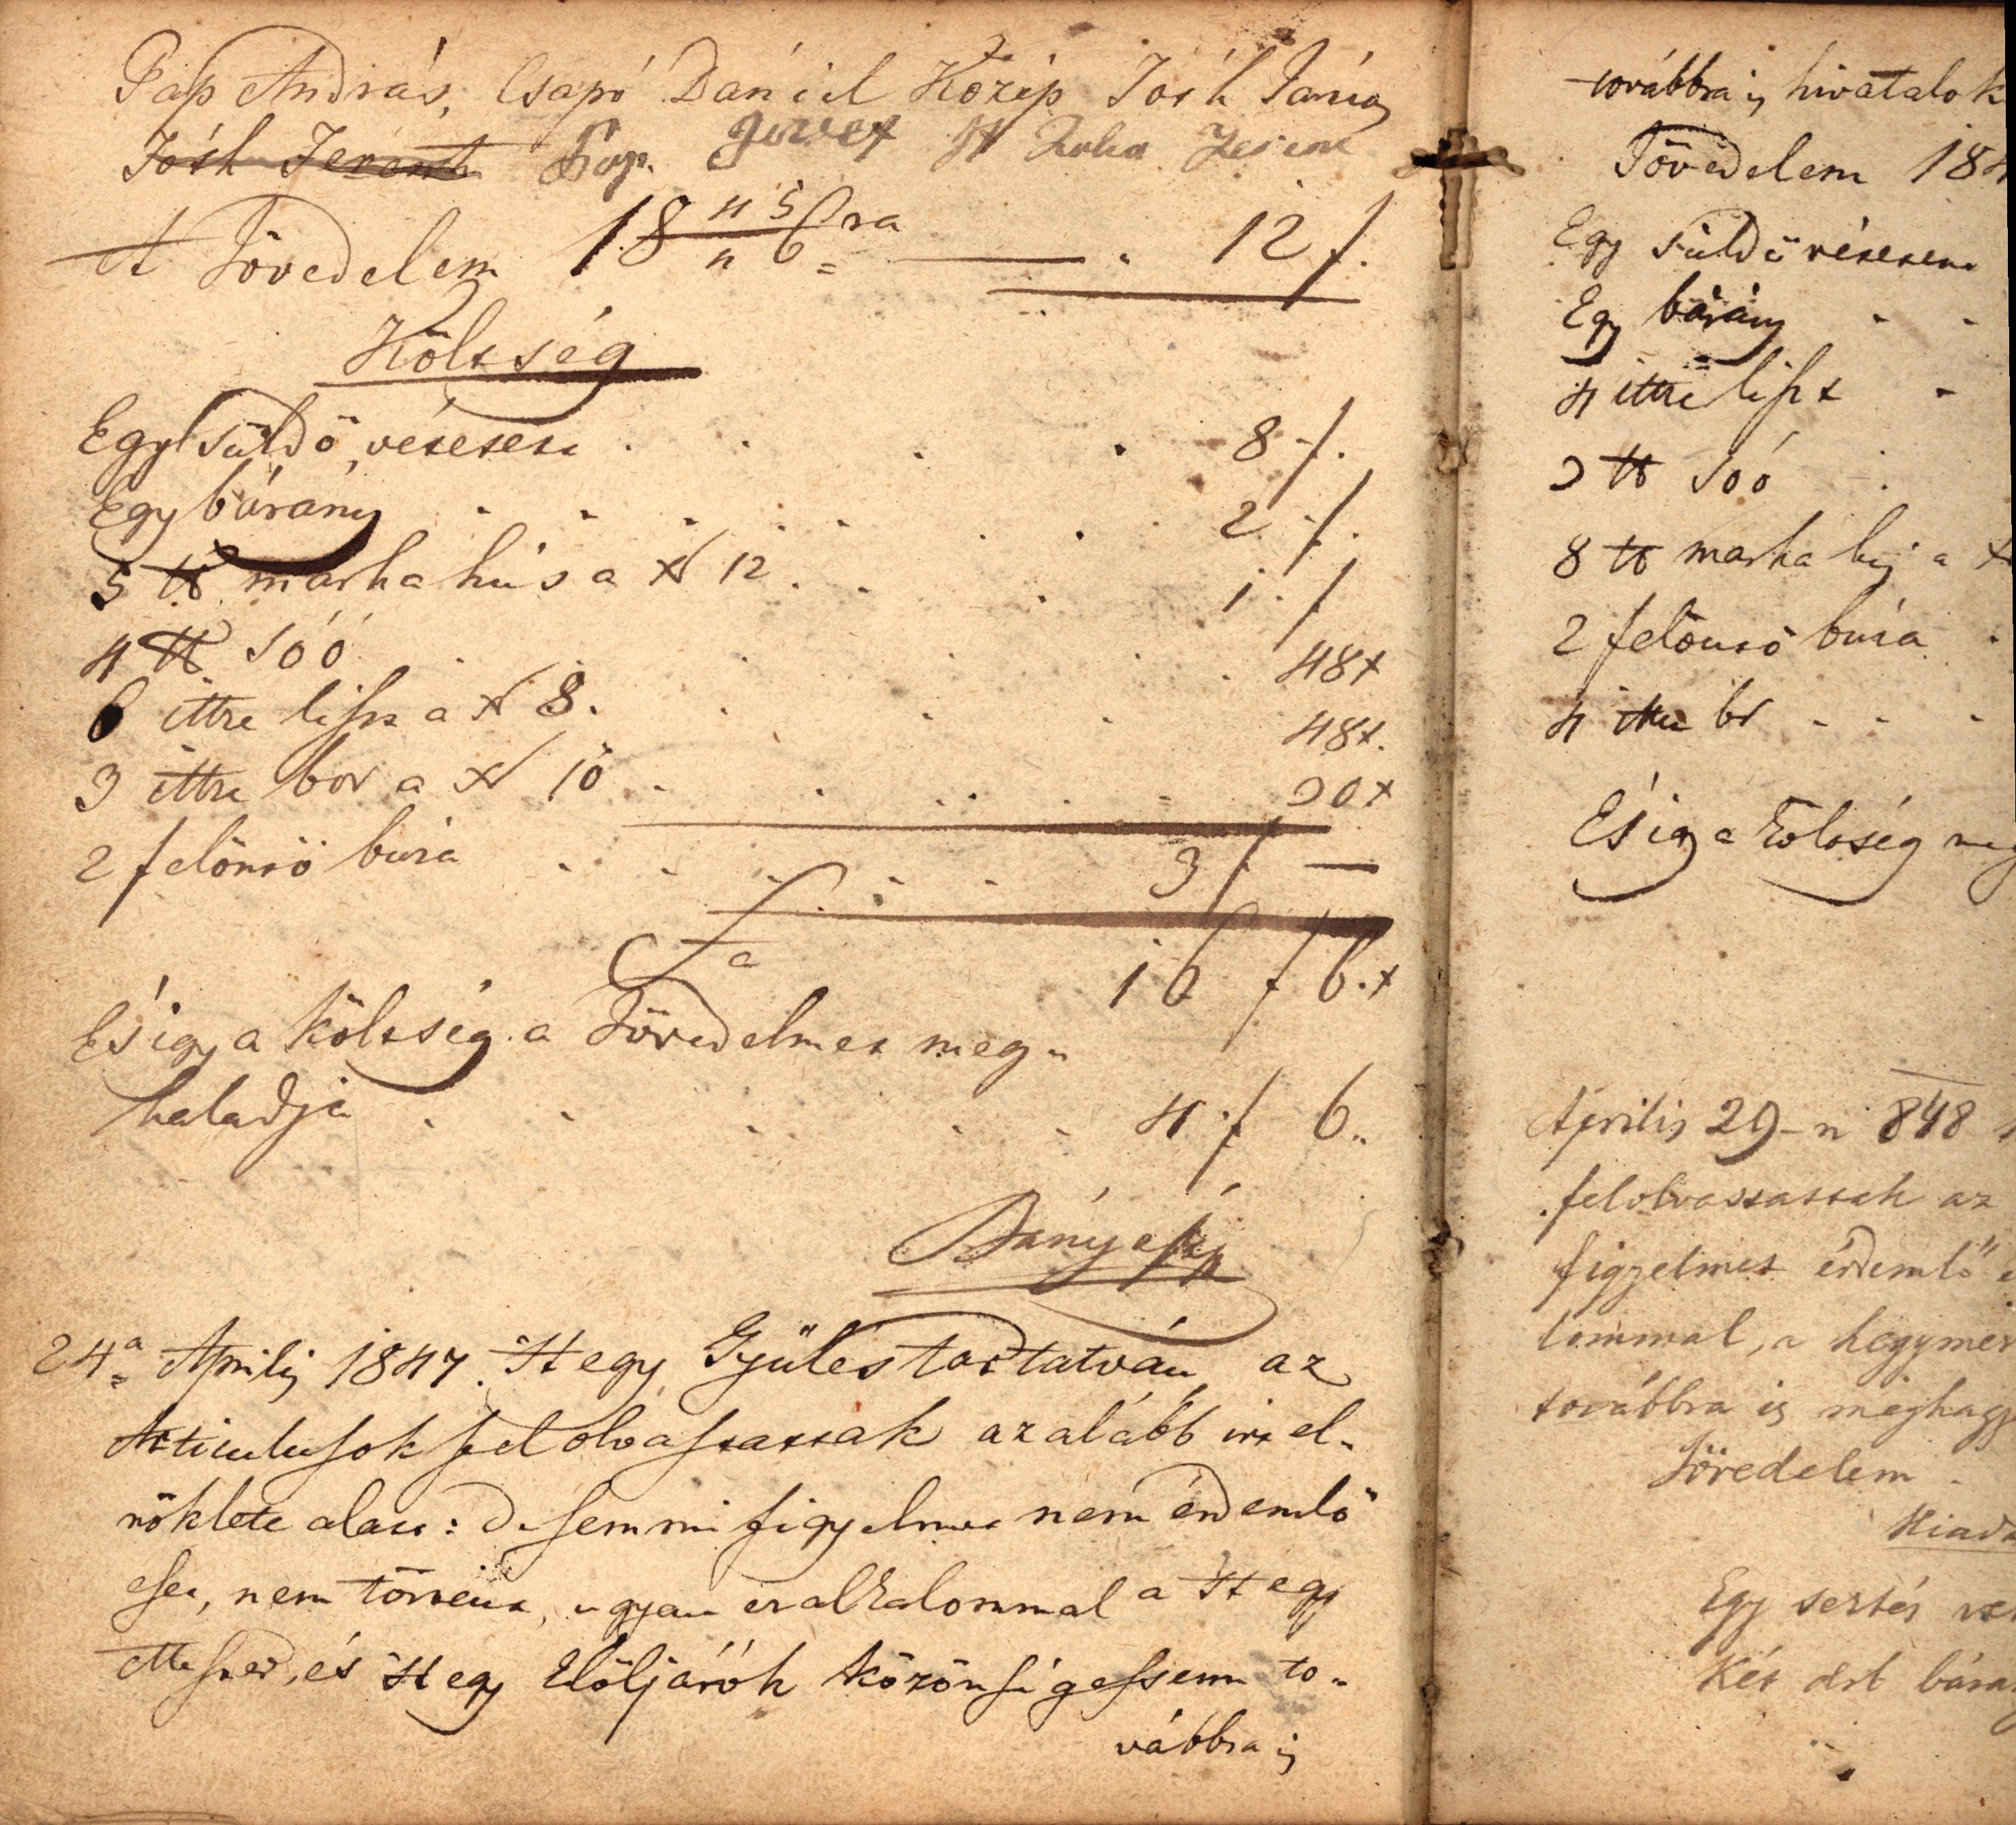 Pap András, Csapó Dániel Közép Tóth János
Tóth Ferentz
A Jövedelem 18 45/46 ra — 12 f.
Költség
Egy süldő vétetett . . . . 8 f.
Egy bárány . . . . . . . . 2 f.
5 ℔ marha hús a xr 12 . . . 1 . f
4 ℔ Sóó . . . . 48 x
6 ittze liszt a xr 8 . . . . 48 x.
3 ittze bor a xr 10 . . . . . 30 x
2 felöntő búza . . . . . . 3 f —
Sa 16 f 6. x
És igy a költség a Jövedelmet meg„
haladja . . . . . 4 f 6„
24a Aprilis 1847. Hegy Gyülés tartatván az
Articulusok fel olvastattak az alább irt el„
nöklete alatt: de semmi figyelmet nem érdemlő
eset, nem történt, ugyan ez alkalommal a Hegy
Mester, és Hegy Elöljárók közönségessenn to„
vábbra is
továbbra is hivatalok
Jövedelem 184
Egy süldő vétetett
Egy bárány . .
4 ittze liszt .
3 ℔ Sóó .
8 ℔ marha hús a x
2 felöntő búza .
4 ittze bor . . .
És igy a költség meg
Április 29-n 848
felolvastattak az
figyelmet érdemlő e
lommal, a hegymes
továbbra is meghagy
Jövedelem .
Kiadá
Egy sertés ve
Két drb bárány